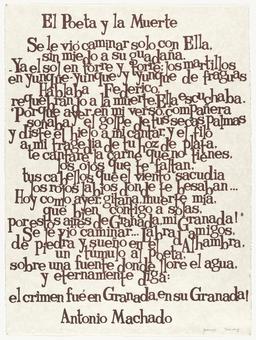 El Poeta y la Muerte
Se le vió caminar solo con Ella,
sin miedo a su guadaña.
Ya el sol en torre y torre; los martillos
en yunque-yunque y yunque de fraguas
Hablaba Federico,
requebrando a la muerte. Ella escuchaba.
"Porque ayer en mi verso, compañera
sonaba el golpe de tus secas palmas
y diste el hielo a mi cantar, y el filo
a mi tragedia de tu hoz de plata,
te cantaré la carne que no tienes,
los ojos que te faltan,
tus cabellos que el viento sacudía
los rojos labios donde te besaban...
Hoy como ayer, gitana, muerte mía,
qué bien contigo a solas,
por estos aires de Granada, mi Granada!"
Se le vió caminar... Labrad, amigos,
de piedra y sueño en el Alhambra,
un túmulo al Poeta,
sobre una fuente donde llore el agua,
y eternamente diga:
el crimen fué en Granada, en su Granada!
Antonio Machado